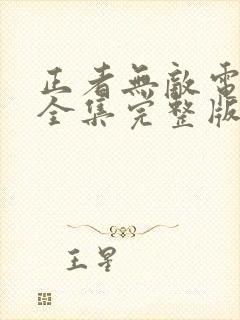 正者無敵電
全集完整版
王星